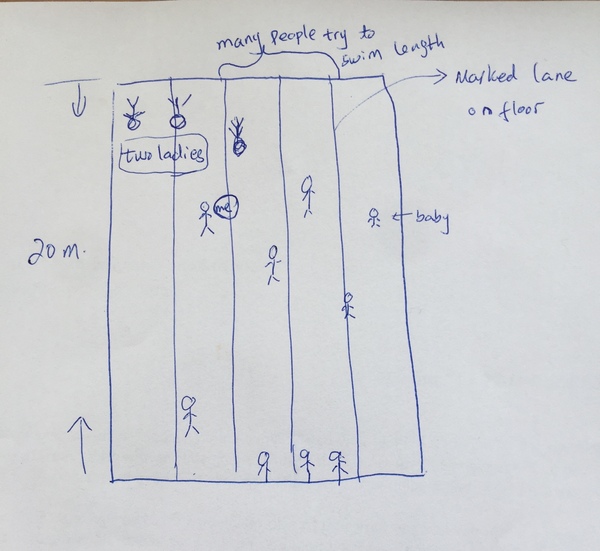 many people try to
swim length
Marked lane
on floor
two ladies
me
baby
20 m.